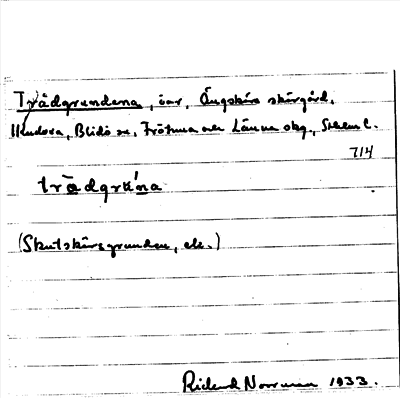 Trådgrundena, öar, Ängskärs skärgård,
Blidö sn, Frötuna och Länna skg., Sthlms l.
714
trådgrúna
(Skutskärsgrunden, ek.)
Rickard Norrman 1933.